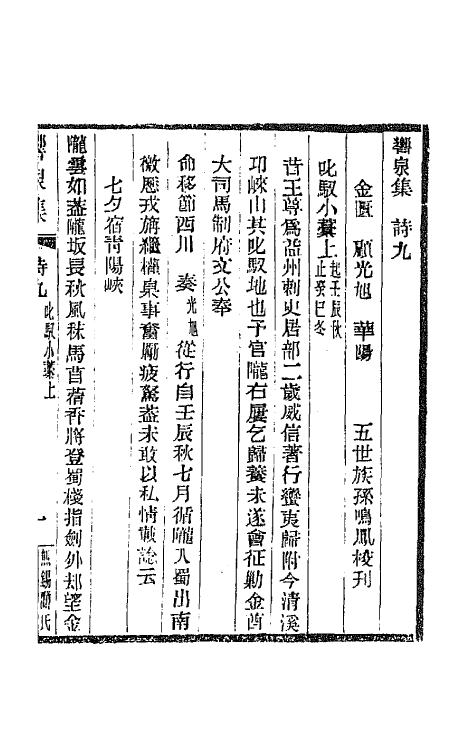 響泉集 詩九
金匱 顧光旭 華陽 五世族孫鳴鳳校刊
叱馭小藁上 起壬辰秋止癸巳冬
昔王尊爲益州刺史居部二歲威信著行蠻夷歸附今清溪
邛崍山其叱馭地也予官隴右屢乞歸養未遂會征勦金酋
大司馬制府文公奉
命移節西川 奏光旭從行自壬辰秋七月循隴入蜀出南
徼歷戎旃繼權臬事奮勵疲駑蓋未敢以私情輒諗云
七夕宿青陽峽
隴雲如蓋隴坂長秋風秣馬苜蓿香將登蜀棧指劍外却望金
響泉集
詩九 叱馭小藁上
一
無錫顧氏